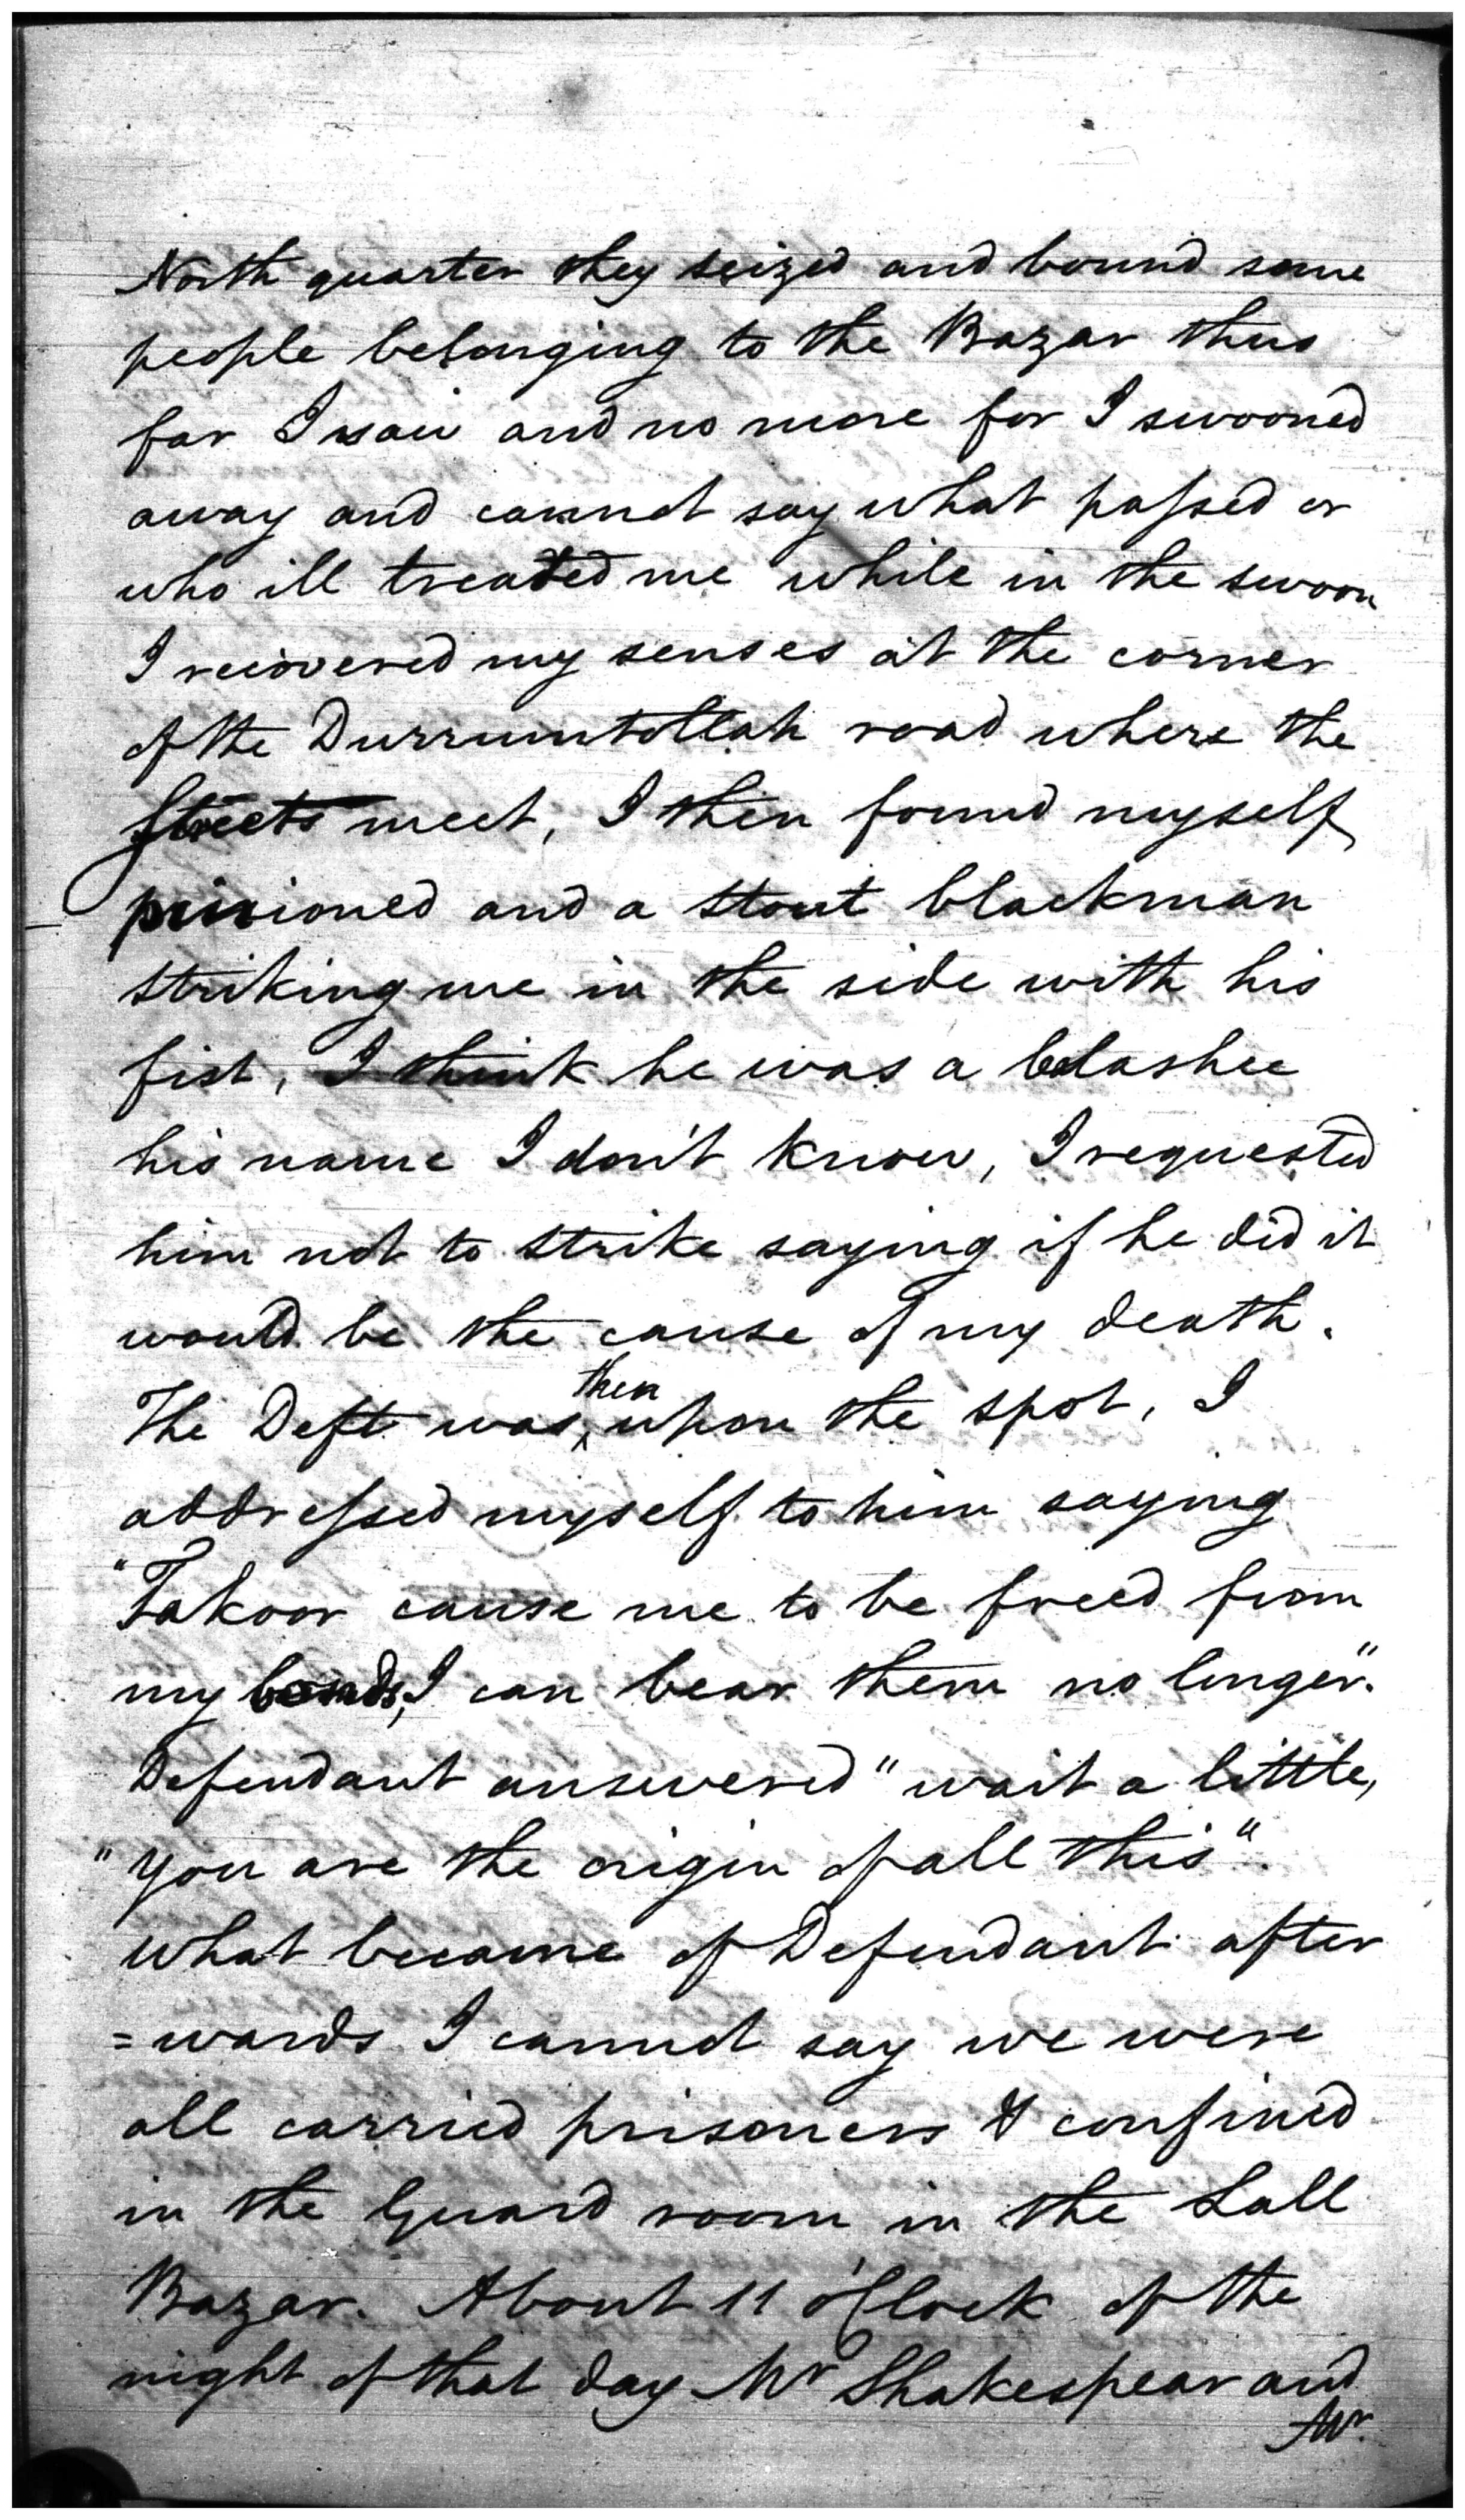 North quarter they seized and bound some
people belonging to the Bazar thus
far I saw and no more for I swooned
away and cannot say what passed or
who ill treated me while in the swoon
I recovered my senses at the corner
of the Durrumtollah road where the
Streets meet, I then found myself
pinioned and a stout blackman
striking me in the side with his
fist, I think he was a belashee
his name I don't know, I requested
him not to strike saying if he did it
would be the cause of my death.
The Deft was then upon the spot, I
addressed myself to him saying
"Takoor cause me to be freed from
my bonds, I can bear them no longer".
Defendant answered "wait a little,
"you are the origin of all this".
What became of Defendant after
=wards I cannot say we were
all carried prisoners & confined
in the Guard room in the Lall
Bazar. About 11 o'Clock of the
night of that day Mr Shakespear and
Mr.